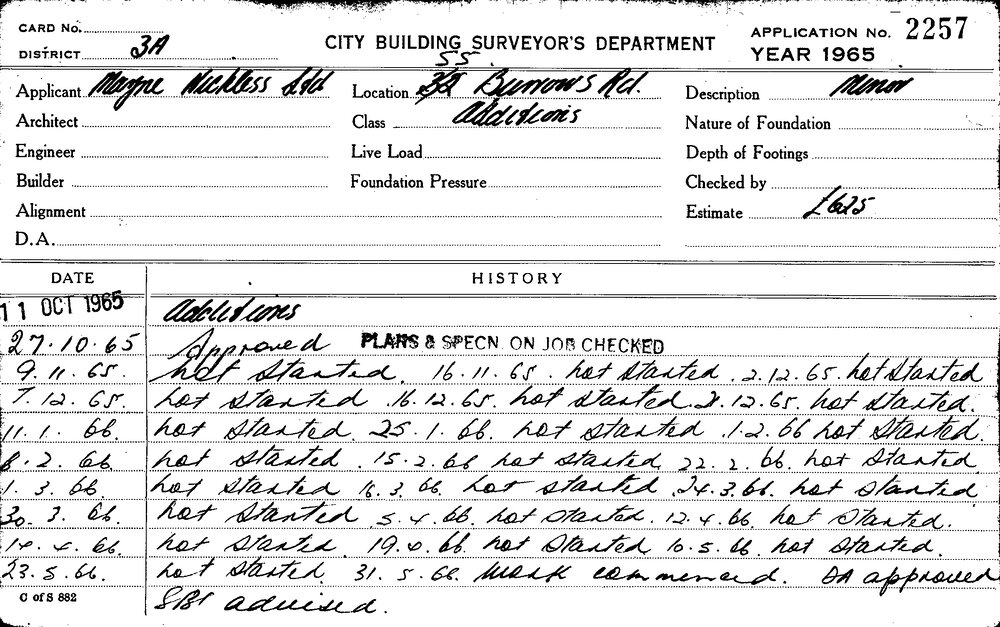 CARD No.
DISTRICT 3A
CITY BUILDING SURVEYOR'S DEPARTMENT
APPLICATION No. 2257
YEAR 1965
55
Applicant Mayne Nickless Ltd Location 32 Burrows Rd. Description Minor
Architect Class Additions Nature of Foundation
Engineer Live Load Depth of Footings
Builder Foundation Pressure Checked by
Alignment Estimate £625
D.A.
DATE HISTORY
11 OCT 1965 Additions
27.10.65 Approved PLANS & SPECN. ON JOB CHECKED
9.11.65. not started. 16.11.65. not started. 2.12.65. not started
7.12.65. not started. 16.12.65. not started. 21.12.65. not started.
11.1.66. not started. 25.1.66. not started. 1.2.66 not started.
8.2.66. not started. 15.2.66 not started. 22.2.66. not started
1.3.66. not started 16.3.66. not started. 24.3.66. not started
30.3.66. not started 5.4.66. not started. 12.4.66. not started.
14.4.66. not started. 19.4.66. not started 10.5.66. not started.
23.5.66. not started. 31.5.66. Work commenced. DA approved
advised.
C of S 882